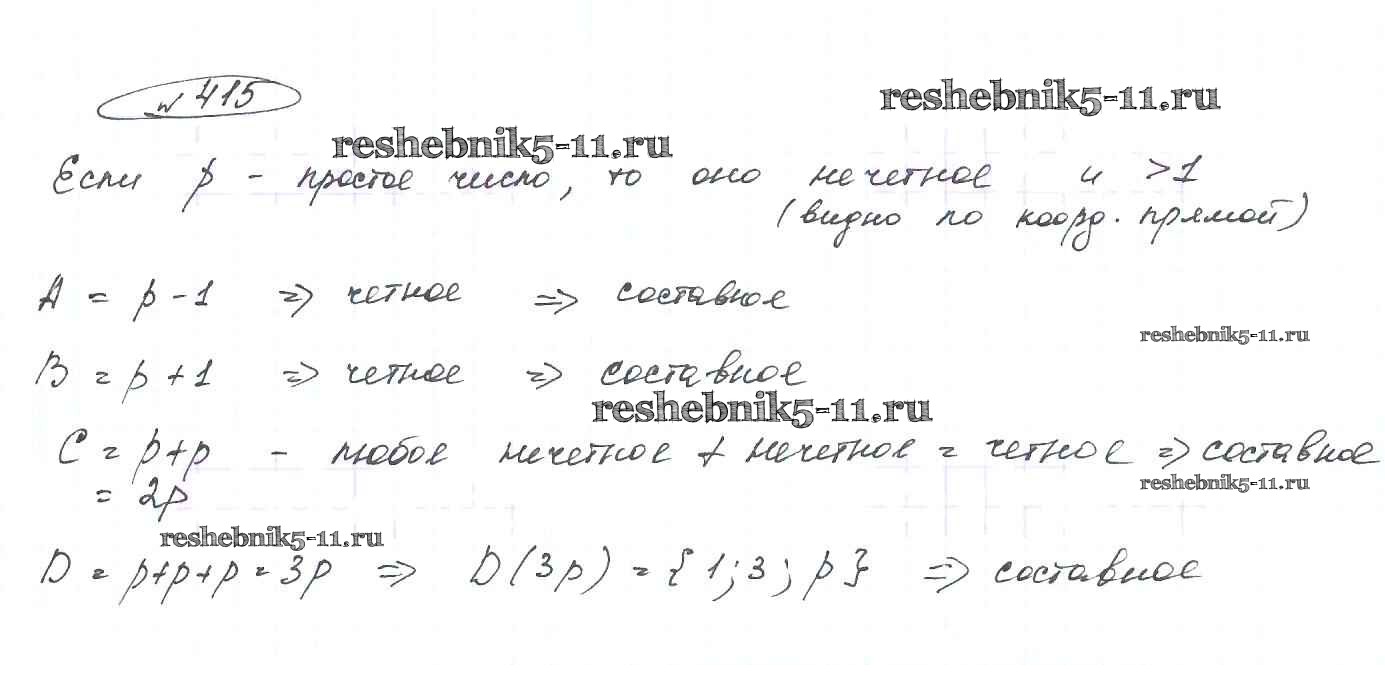 № 415
reshebnik5-11.ru
reshebnik5-11.ru
Если p - простое число, то оно нечетное и >1
(видно по коорд. прямой)
A = p - 1 => четное => составное
reshebnik5-11.ru
B = p + 1 => четное => составное
reshebnik5-11.ru
C = p+p - любое нечетное + нечетное = четное => составное
= 2p
reshebnik5-11.ru
reshebnik5-11.ru
D = p+p+p = 3p => D(3p) = {1; 3; p} => составное